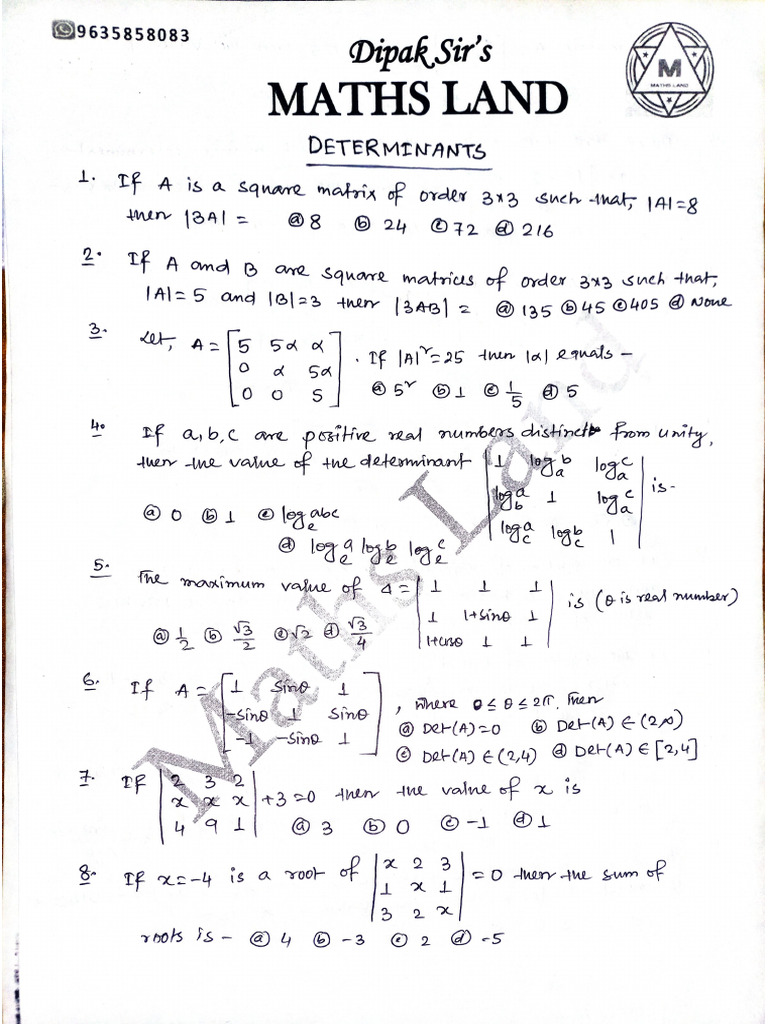 9635858083
Dipak Sir's
MATHS LAND
M
MATHS LAND
DETERMINANTS
1. If A is a square matrix of order 3×3 such that, |A|=8
then |3A| = ⓐ 8 ⓑ 24 ⓒ 72 ⓓ 216
2. If A and B are square matrices of order 3×3 such that,
|A|=5 and |B|=3 then |3AB| = ⓐ 135 ⓑ 45 ⓒ 405 ⓓ None
3. Let, A = [5 5α α
0 α 5α
0 0 5] . If |A|² = 25 then |α| equals –
ⓐ 5² ⓑ 1 ⓒ 1/5 ⓓ 5
4. If a, b, c are positive real numbers distinct from unity,
then the value of the determinant |1 log_a b log_a c
log_b a 1 log_a c
log_c a log_c b 1| is -
ⓐ 0 ⓑ 1 ⓒ log_e abc
ⓓ log_e a log_e b log_e c
5. The maximum value of Δ = |1 1 1
1 1+sinθ 1
1+cosθ 1 1| is (θ is real number)
ⓐ 1/2 ⓑ √3/2 ⓒ √2 ⓓ √3/4
6. If A = [1 sinθ 1
-sinθ 1 sinθ
-1 -sinθ 1] , where 0 ≤ θ ≤ 2π. Then
ⓐ Det(A)=0 ⓑ Det(A) ∈ (2,∞)
ⓒ Det(A) ∈ (2,4) ⓓ Det(A) ∈ [2,4]
7. If |2 3 2
x x x
4 9 1| +3=0 then the value of x is
ⓐ 3 ⓑ 0 ⓒ -1 ⓓ 1
8. If x=-4 is a root of |x 2 3
1 x 1
3 2 x| = 0 then the sum of
roots is – ⓐ 4 ⓑ -3 ⓒ 2 ⓓ -5
Maths Land